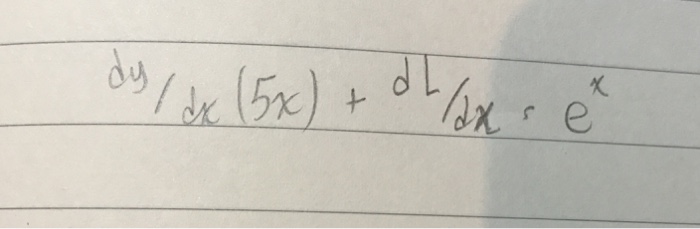 dy/dx (5x) + dL/dx = e^x